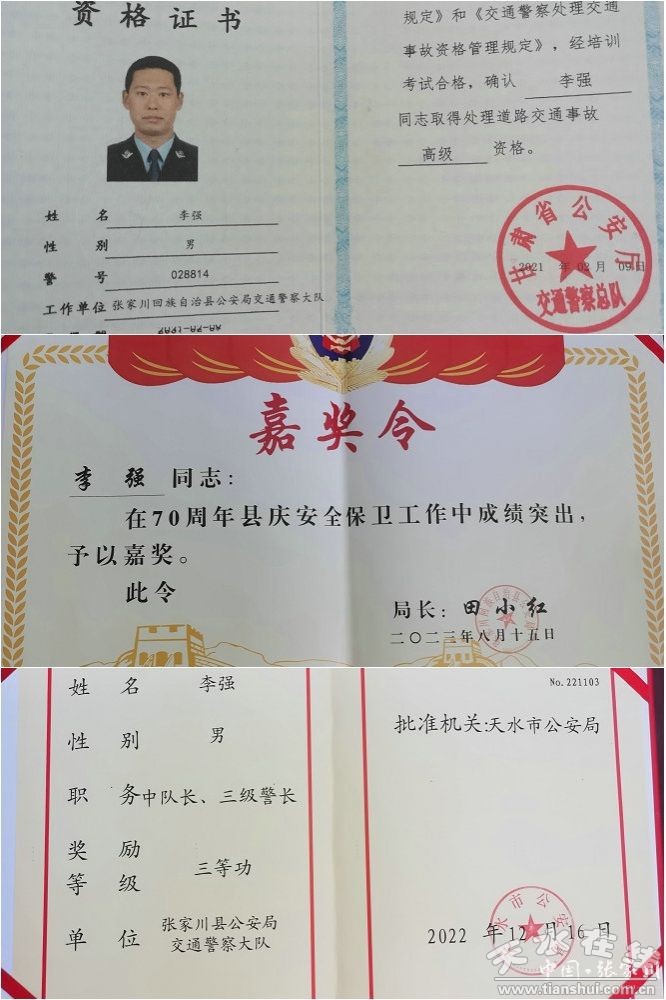 资格证书
姓名 李强
性别 男
警号 028814
工作单位 张家川回族自治县公安局交通警察大队
规定》和《交通警察处理交通
事故资格管理规定》，经培训
考试合格，确认 李强
同志取得处理道路交通事故
高级 资格。
甘肃省公安厅
2021 年 02 月 09 日
交通警察总队
嘉奖令
李强 同志：
在70周年县庆安全保卫工作中成绩突出，
予以嘉奖。
此令
局长：田小红
二〇二三年八月十五日
姓名 李强
性别 男
职务 中队长、三级警长
奖励等级 三等功
单位 张家川县公安局
交通警察大队
No. 221103
批准机关:天水市公安局
2022 年 12 月 16 日
天水在线
中国·张家川
www.tianshui.com.cn